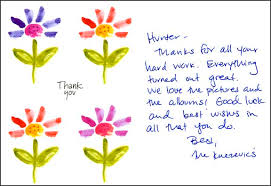 Thank
you
Hunter-
Thanks for all your
hard work. Everything
turned out great.
We love the pictures and
the albums! Good luck
and best wishes in
all that you do.
Best,